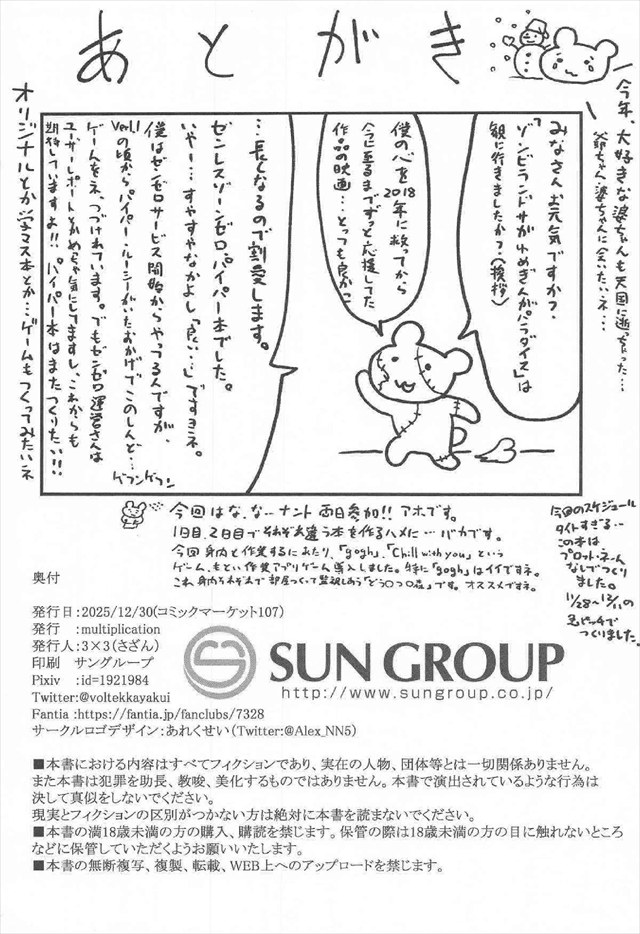 あとがき
今年、大好きな婆ちゃんも天国に逝っちゃった…
爺ちゃん、婆ちゃんに会いたいネ…
みなさんお元気ですか?
「ゾンビランドサガゆめぎんがパラダイス」は
観に行きましたか?(挨拶)
僕の心を2018
年に救ってから
今に至るまでずっと応援してた
作品の映画…とっても良かっ
…長くなるので割愛します。
ゼンレスゾーンゼロ、パイパー本でした。
いやー…すやすやなかよし「良い…」ですヨネ。
僕はゼンゼロサービス開始からやってるんですが、
Ver1.1
の頃からパイパー・ルーシーがいたおかげでこのしんど…
ゲフンゲフン
ゲームをネっつづけれています。でもゼンゼロ運営さんは
ユーザーレポートとかめちゃ気にしてますし、これからも
期待しています!!パイパー本はまたつくりたい!!
オリジナルとか学マス本とか…ゲームもつくってみたいネ
今回はな、な…ナント両日参加!!アホです。
1日目、2日目でそれぞれ違う本を作るハメに…バカです。
今回身内と作業するにあたり、「gogh」、「Chill with you」という
ゲーム、もとい作業アプリゲーム導入しました。特に「gogh」はイイですネ。
これ身内それぞれで部屋つくって監視しあう「どう○つ○森」です。オススメですネ。
今回のスケジュール
タイトすぎる…
この本は
プロット・ネーム
なしでつくり
ました。
11/28~12/11の
ピッチで
つくりました。
奥付
発行日:2025/12/30(コミックマーケット107)
発行 :multiplication
発行人:3×3(さざん)
印刷 サングループ
Pixiv :id=1921984
Twitter:@voltekkayakui
Fantia:https://fantia.jp/fanclubs/7328
サークルロゴデザイン:あれくせい(Twitter:@Alex_NN5)
SUN GROUP
http://www.sungroup.co.jp/
■本書における内容はすべてフィクションであり、実在の人物、団体等とは一切関係ありません。
また本書は犯罪を助長、教唆、美化するものではありません。本書で演出されているような行為は
決して真似をしないでください。
現実とフィクションの区別がつかない方は絶対に本書を読まないでください。
■本書の満18歳未満の方の購入、購読を禁じます。保管の際は18歳未満の方の目に触れないところ
などに保管していただくようお願いいたします。
■本書の無断複写、複製、転載、WEB上へのアップロードを禁じます。